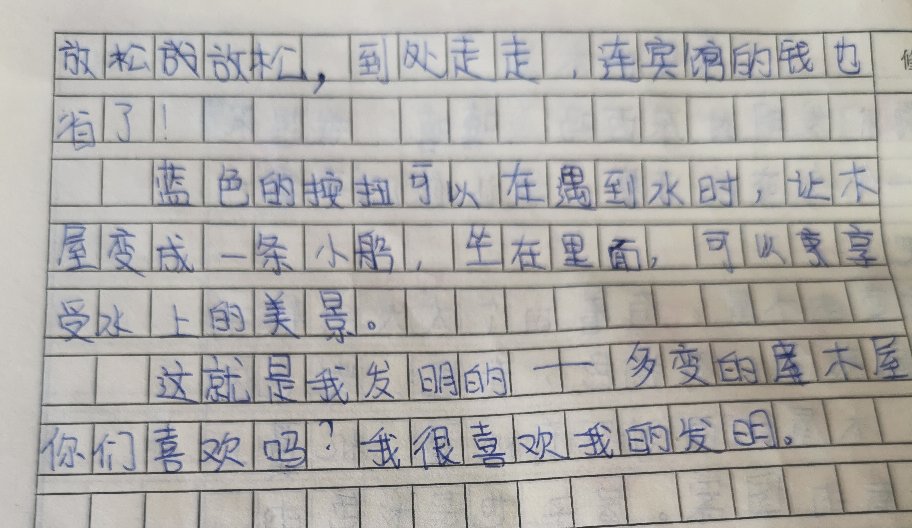 放松放放松，到处走走，连宾馆的钱也
省了！
蓝色的按扭可以在遇到水时，让木
屋变成一条小船，坐在里面，可以享
受水上的美景。
这就是我发明的——多变的木屋
你们喜欢吗？我很喜欢我的发明。